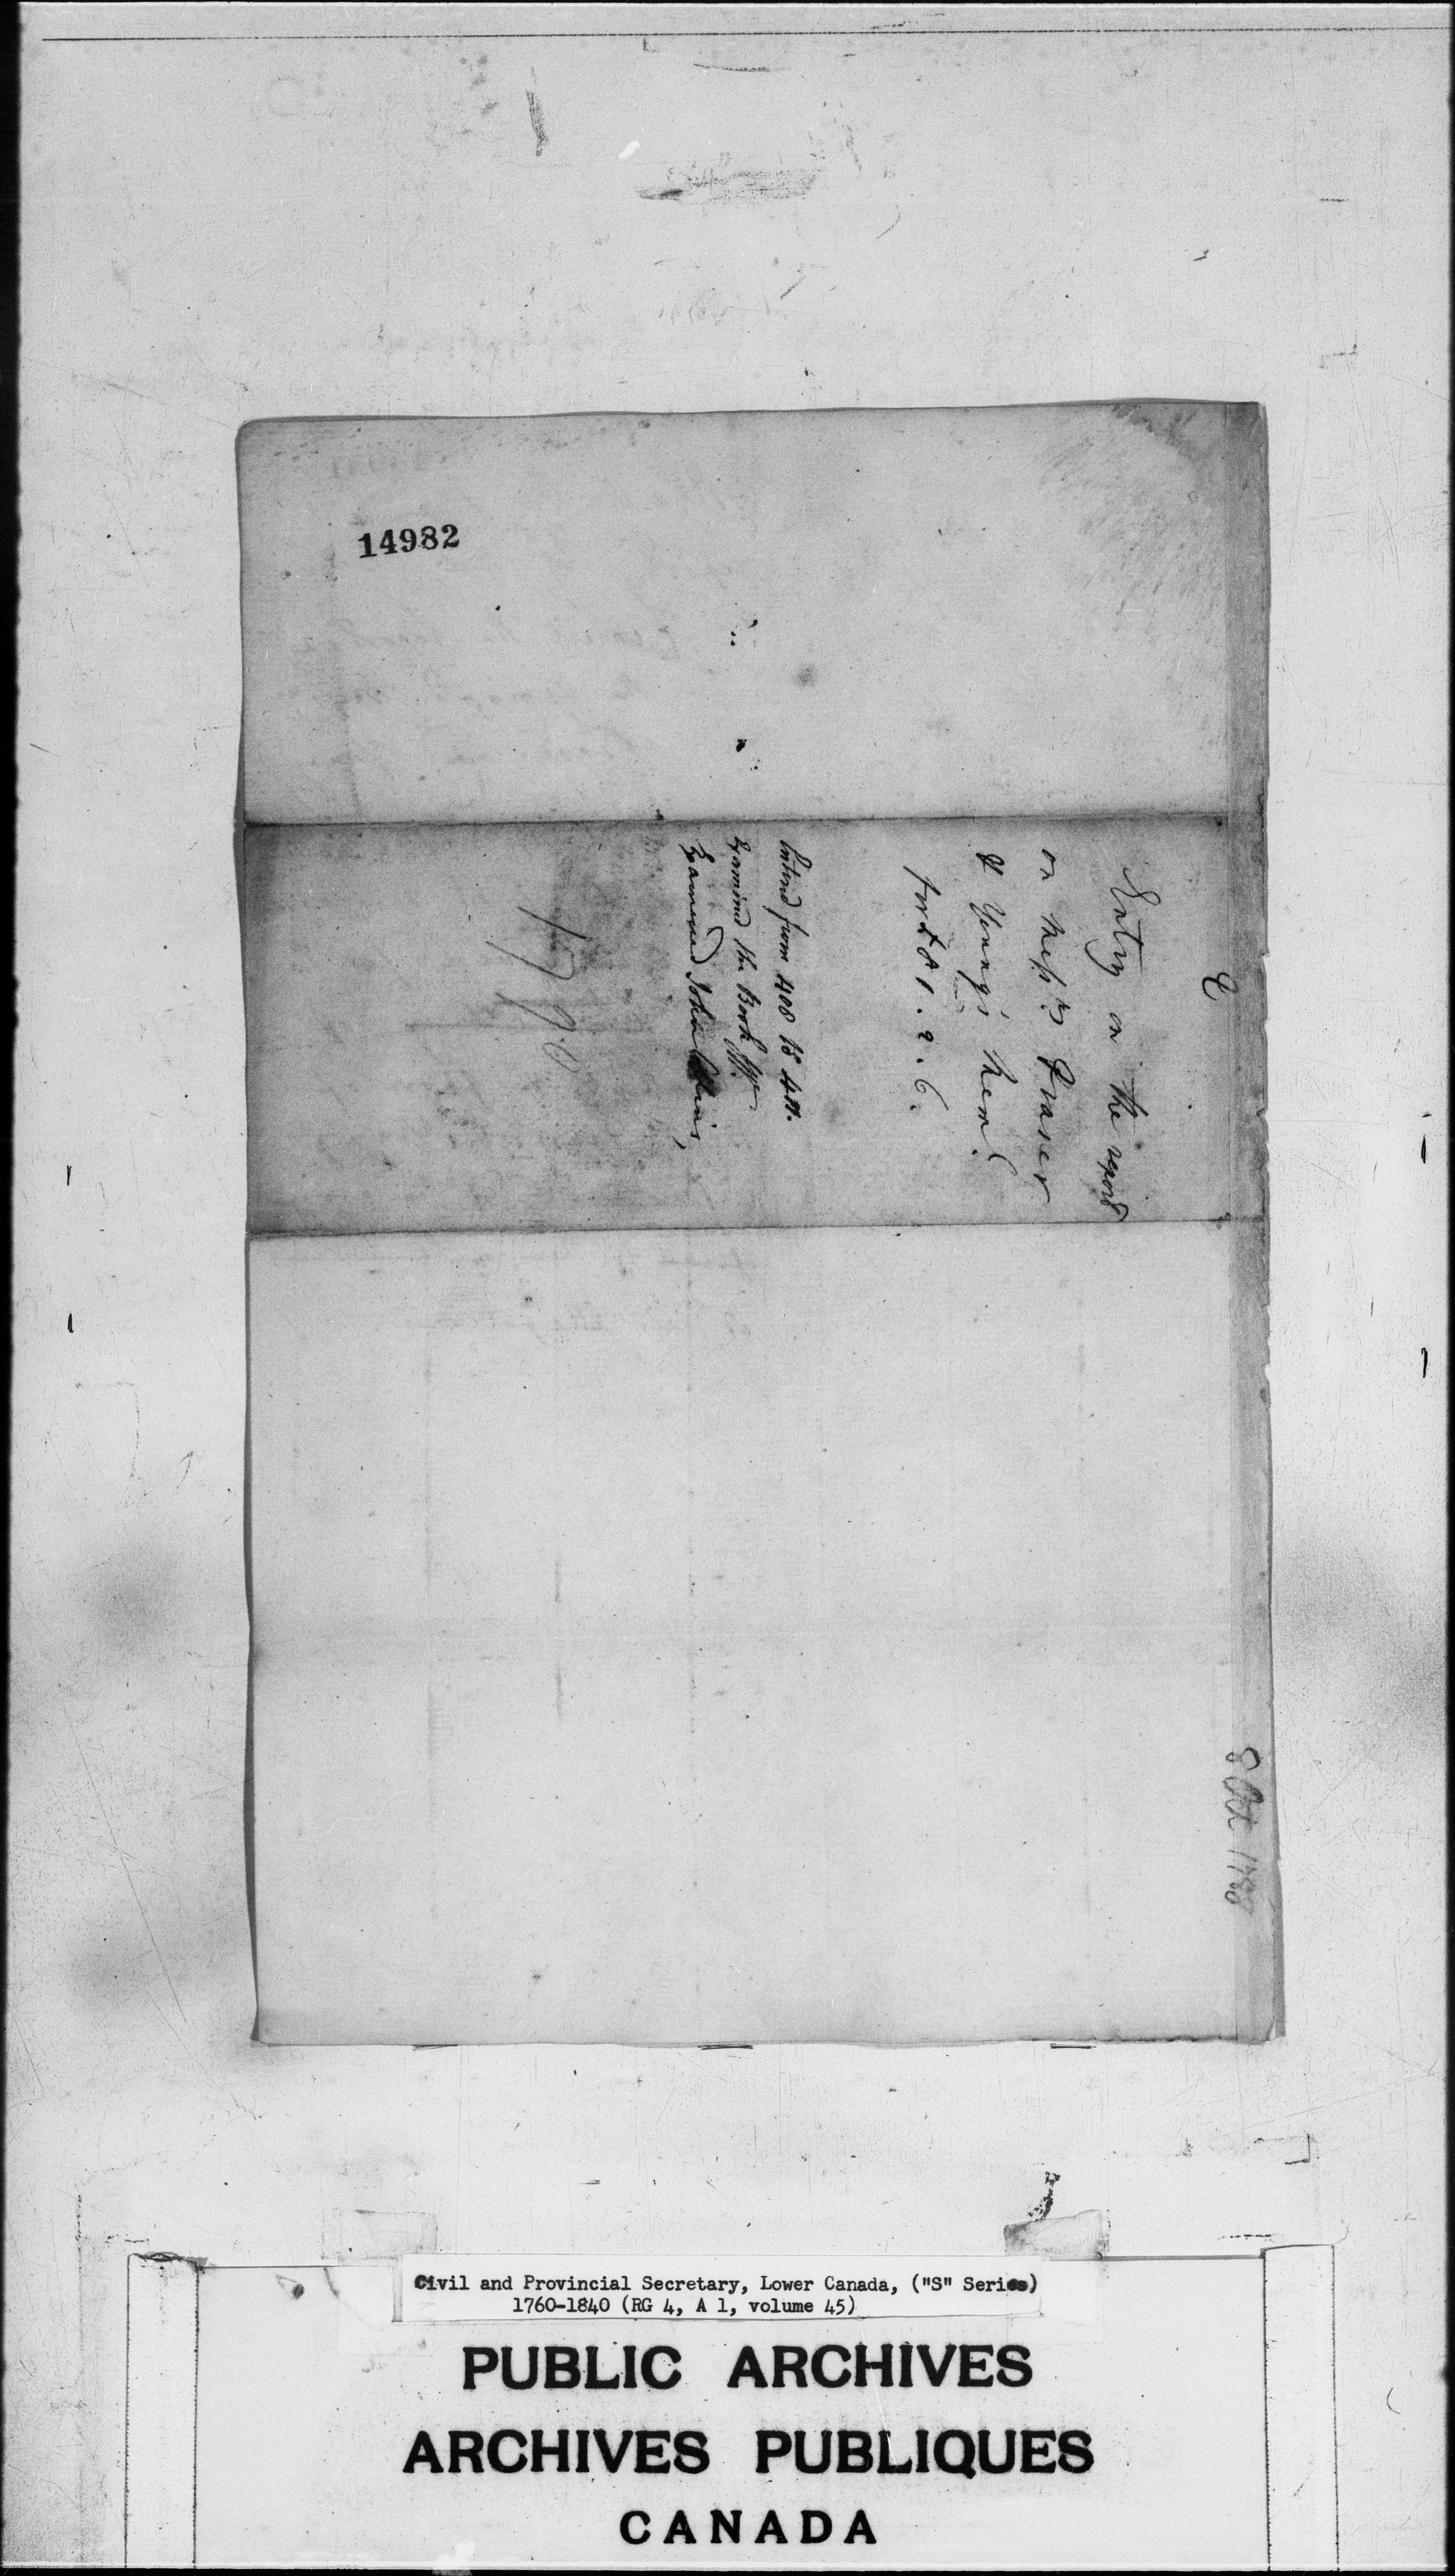 14982
E
Entry on the report
on Mess.rs Fraser
& Young's Mem.l
for £81.2.6.
Enterd from 408 to 411.
Examined the Book
Examined John Collins,
8 Oct 1788
Civil and Provincial Secretary, Lower Canada, ("S" Series)
1760-1840 (RG 4, A 1, volume 45)
PUBLIC ARCHIVES
ARCHIVES PUBLIQUES
CANADA